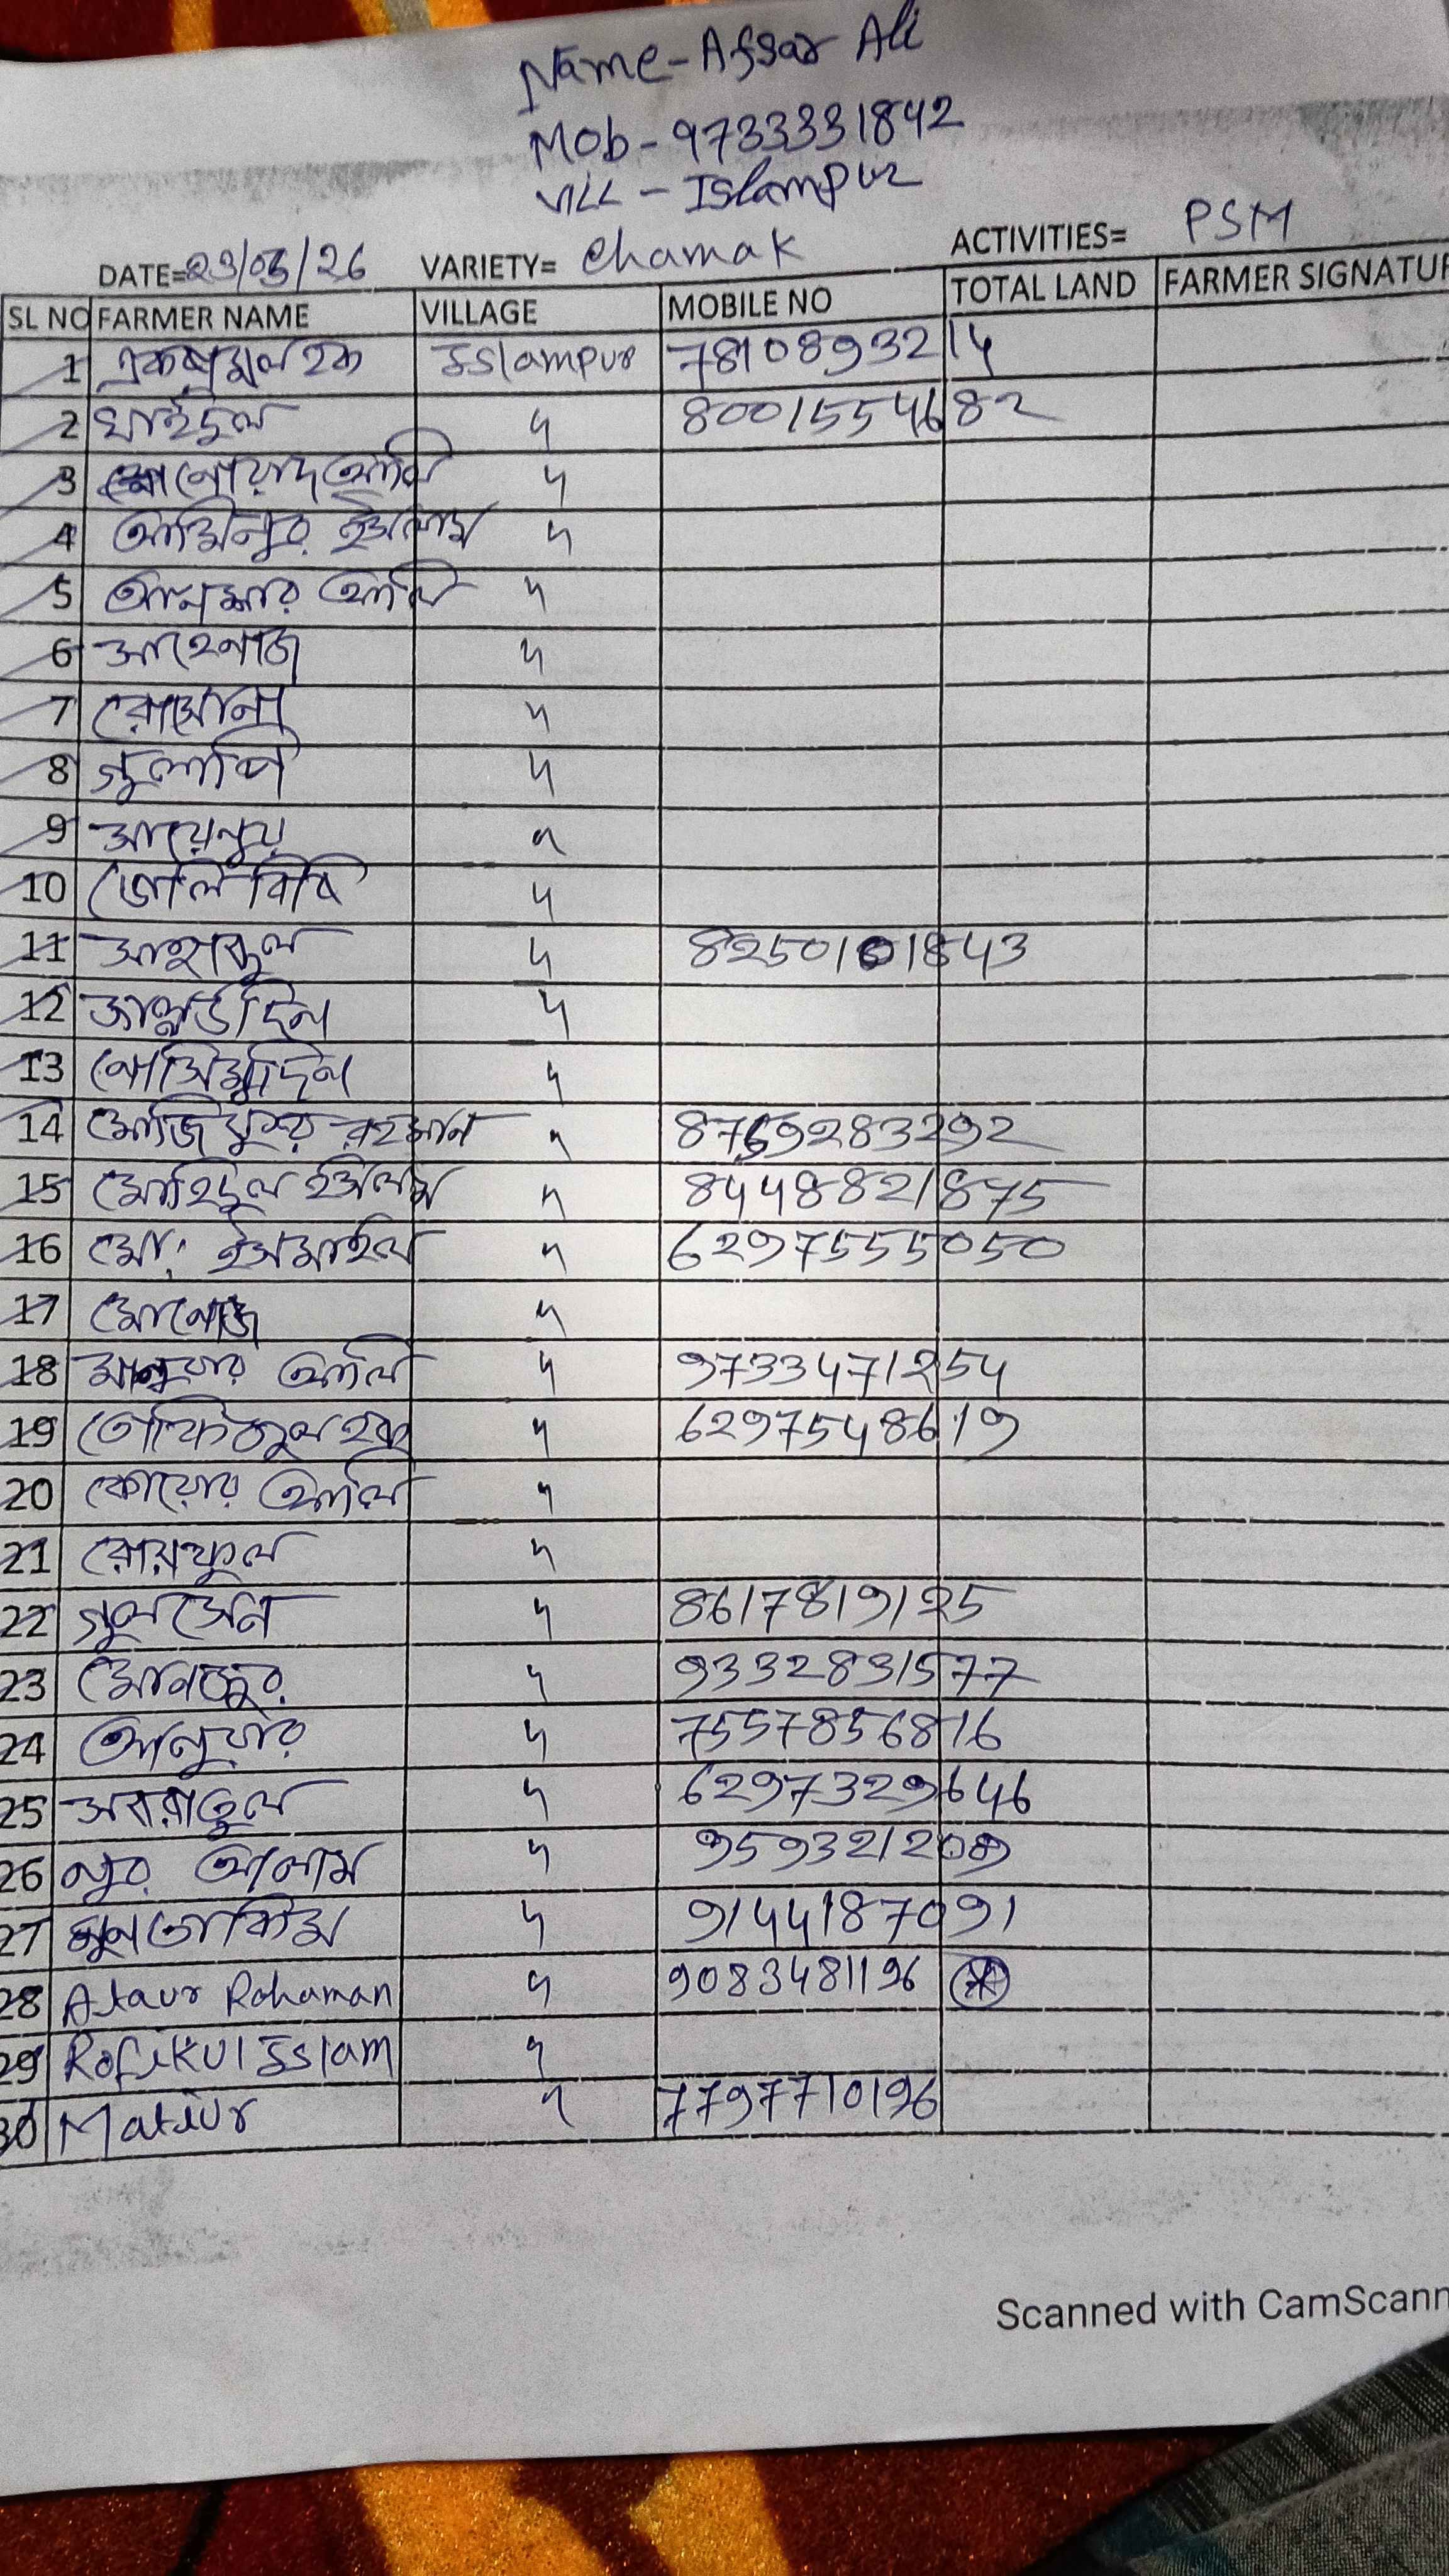 Name - Afsar Ali
Mob - 9733331842
Vill - Islampur
DATE= 23/05/26 VARIETY= Chamak ACTIVITIES= PSM
SL NO FARMER NAME VILLAGE MOBILE NO TOTAL LAND FARMER SIGNATUR
1 হক Islampur 7810893214
2 খাইদুল 〃 8001554682
3 আলি 〃
4 আমিনুর ইসলাম 〃
5 আনসার আলি 〃
6 সাহেনাজ 〃
7 রোসোনা 〃
8 গুলাপি 〃
9 〃
10 জোলি বিবি 〃
11 〃 8250101843
12 〃
13 〃
14 রহমান 〃 8769283292
15 মোহিদুল ইসলাম 〃 8448821875
16 মো: ইসমাইল 〃 6297555050
17 〃
18 আলি 〃 9733471254
19 তোফিজুল হক 〃 6297548619
20 আলি 〃
21 〃
22 গুলসেন 〃 8617819125
23 মোনজুর 〃 9332831577
24 আনুয়ার 〃 7557856816
25 〃 6297329646
26 নুর আলাম 〃 9593212089
27 〃 9144187091
28 Ataur Rohaman 〃 9083481196
29 Rofikul Islam 〃
30 Matiur 〃 7797710196
Scanned with CamScann